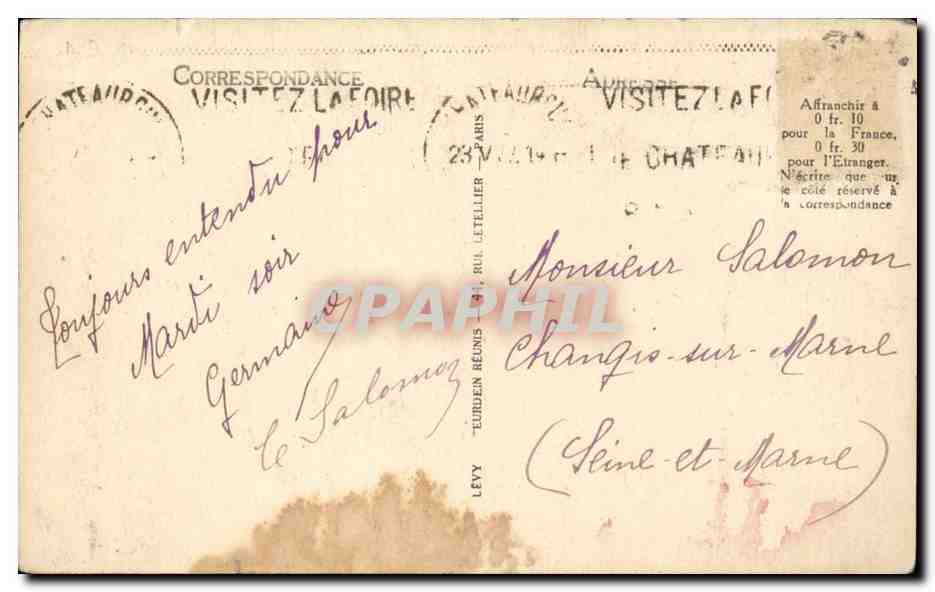 CORRESPONDANCE
ADRESSE
VISITEZ LA FOIRE
VISITEZ LA FO
DE CHATEAU
Affranchir à
0 fr. 10
pour la France,
0 fr. 30
pour l'Etranger.
N'écrire que sur
le côté réservé à
la correspondance
Toujours entendu pour
Mardi soir
Germaine
Salomon
LÉVY ET NEURDEIN RÉUNIS - 44, RUE LETELLIER - PARIS
Monsieur Salomon
Changis-sur-Marne
(Seine-et-Marne)
CPAPHIL